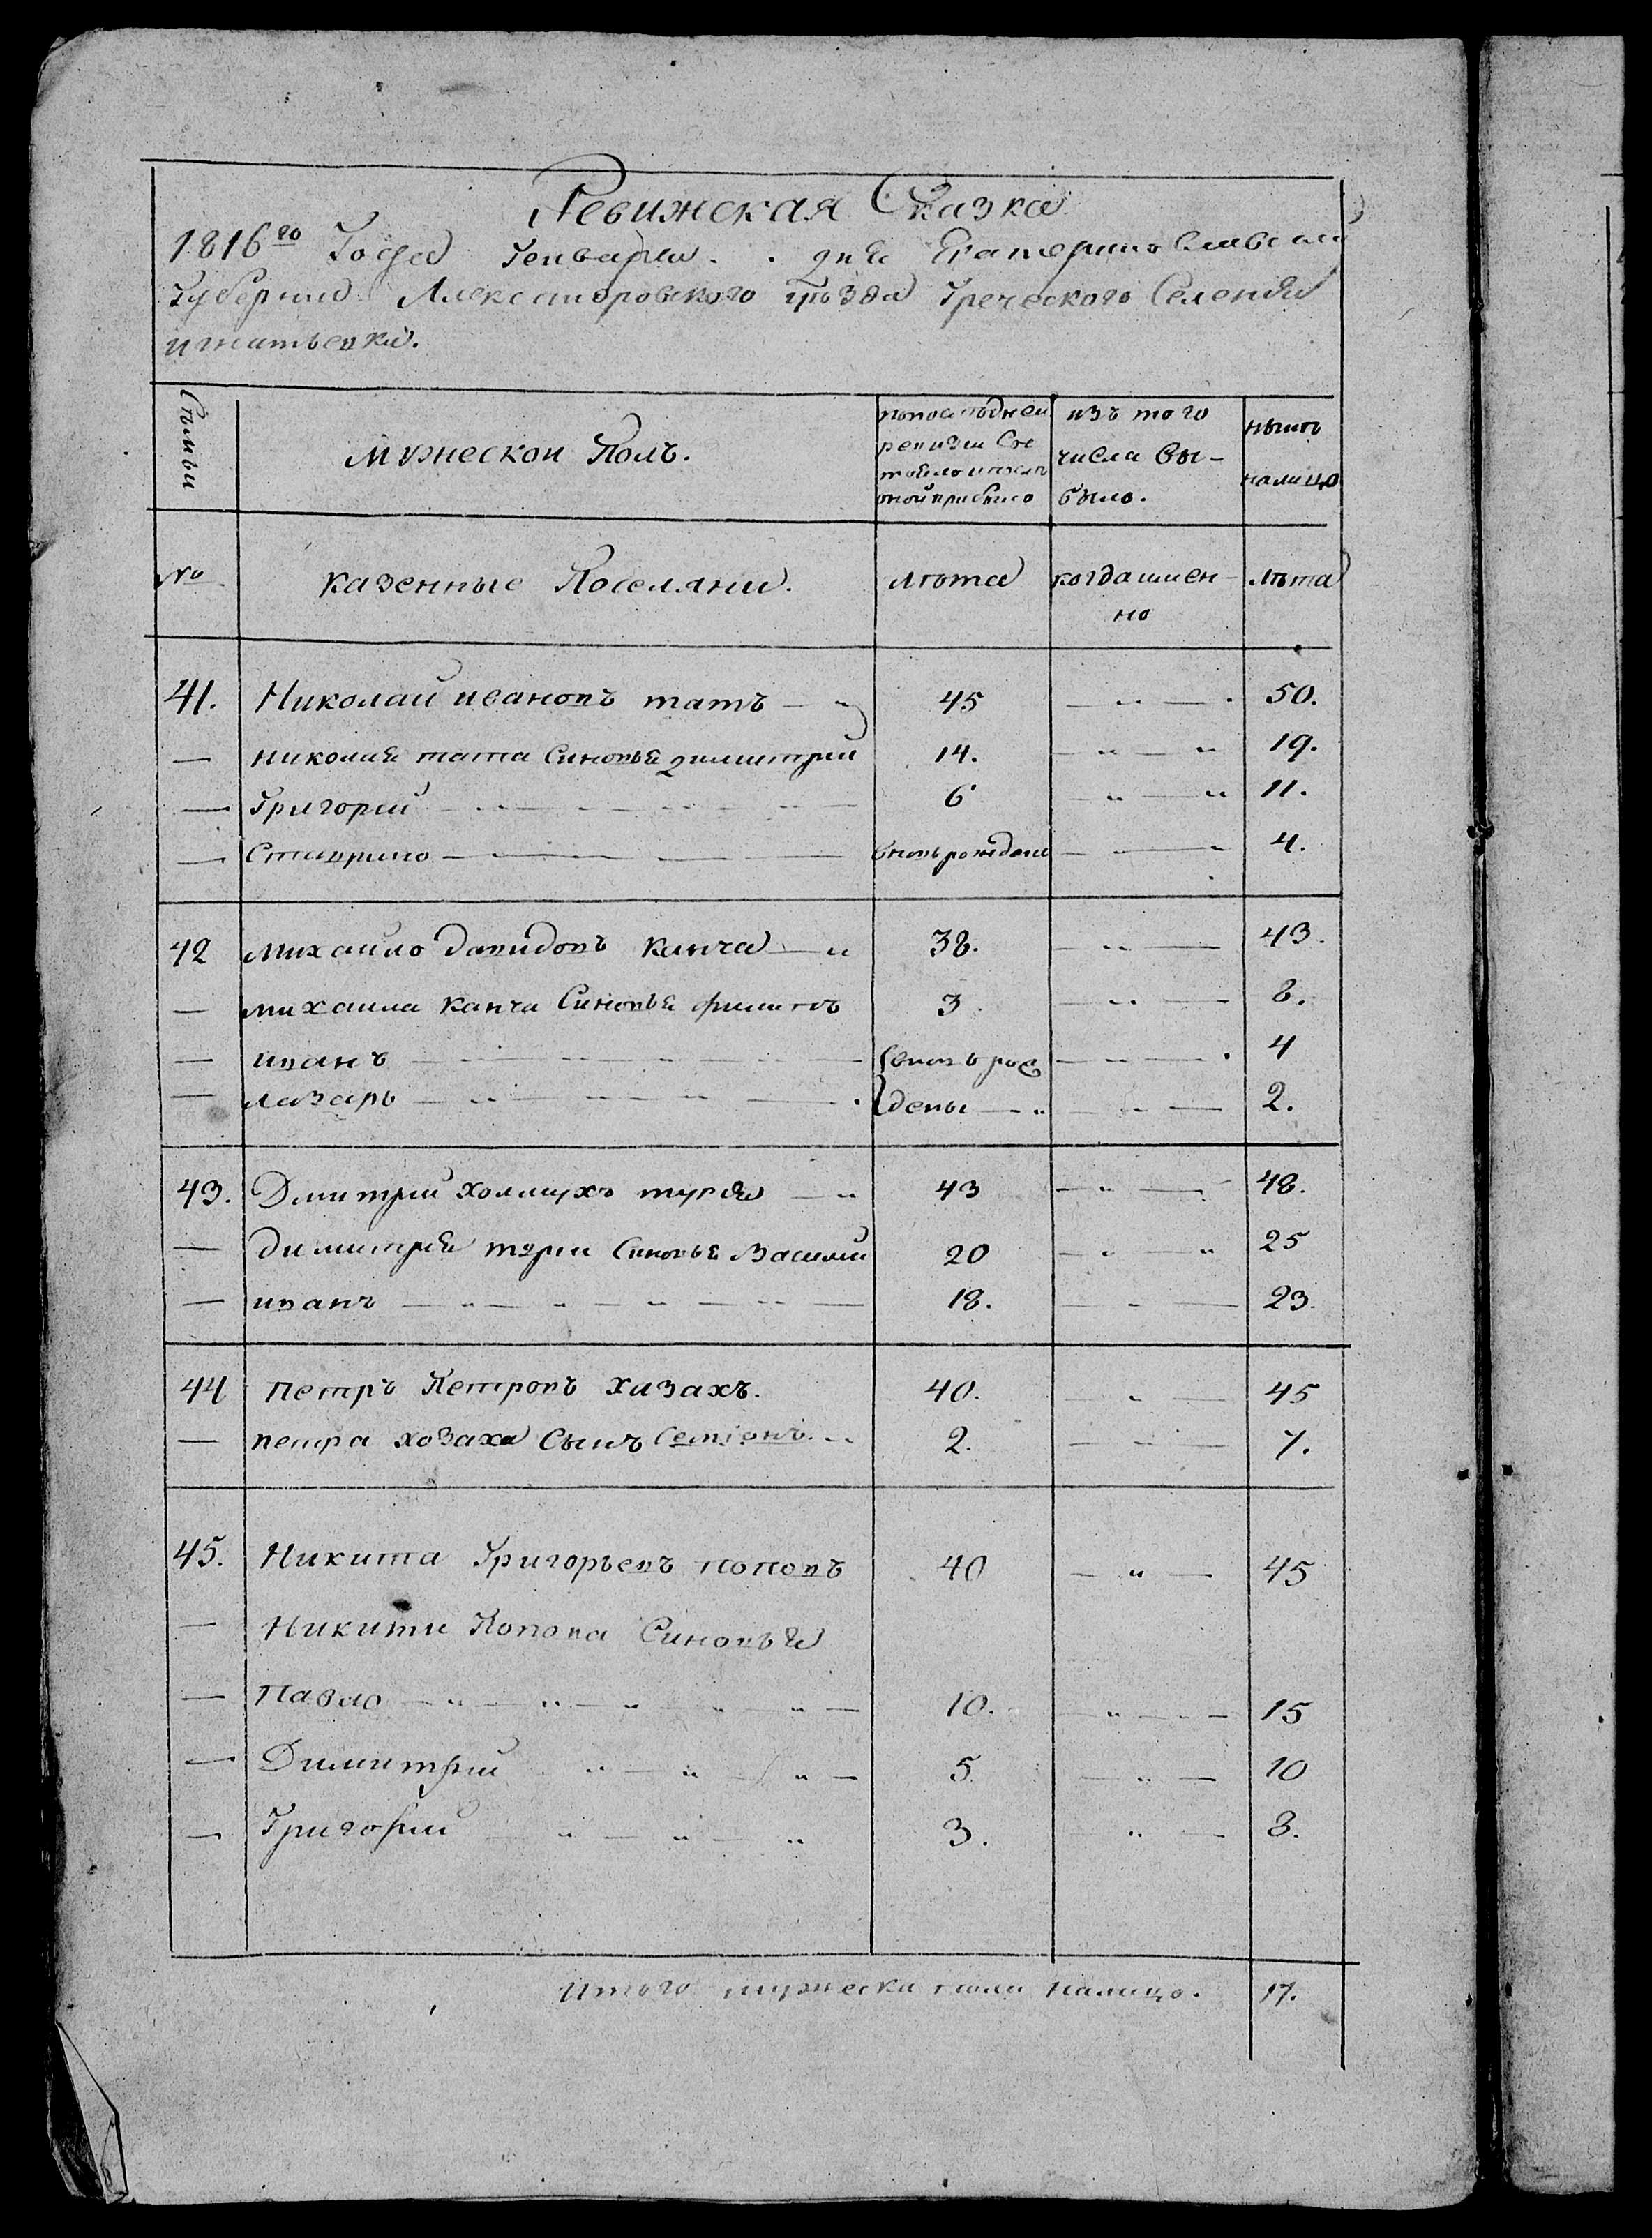 Ревижская Сказка
1816го Года Генваря . . дня Екатеринославской
Губернии Александровского уѣзда Греческого Селения
игнатьевки.
Сѣмьи
Мужескои Полъ.
попослѣдней ревизии Сос тояло и после оной прибыло
изъ того числа вы- было.
нынѣ налицо
№
казенные Поселяни.
лѣта
когда имен- но
лѣта
41. Николаи ивановъ татъ — „ 45 — „ — 50.
— николая тата Синовья димитрий 14. — „ — „ 19.
— Григорий 6 — „ — „ 11.
— Ставрино вновь рожденъ — 4.
42 михаило давидовъ капча — „ 38. — „ — 43.
— михаила капча Синовья филипъ 3 — „ — 8.
— иванъ вновь рож — „ — 4
— лазарь дены — „ — „ — 2.
43. Дмитрий холмухъ туря — „ 43 — „ — 48.
— димитрия тури Синовья Василий 20 — „ — „ 25
— иванъ 18. — „ — 23.
44 петръ Петровъ хазахъ. 40. — „ — 45
— петра хозаха Сынъ Семіонъ 2. — „ — 7.
45. Никита Григорьевъ поповъ 40 — „ — 45
— Никити Попова Синовья
— Павло 10. — „ — 15
— Димитрий 5 — „ — 10
— Григорий 3. „ — 8.
Итого мужеска пола налицо. 17.